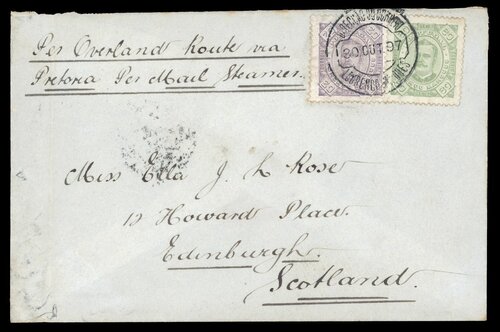 Per Overland Route via
Pretoria Per Mail Steamer.
20 OUT. 97
Miss Ella J. L. Rose
13 Howard Place.
Edinburgh.
Scotland.